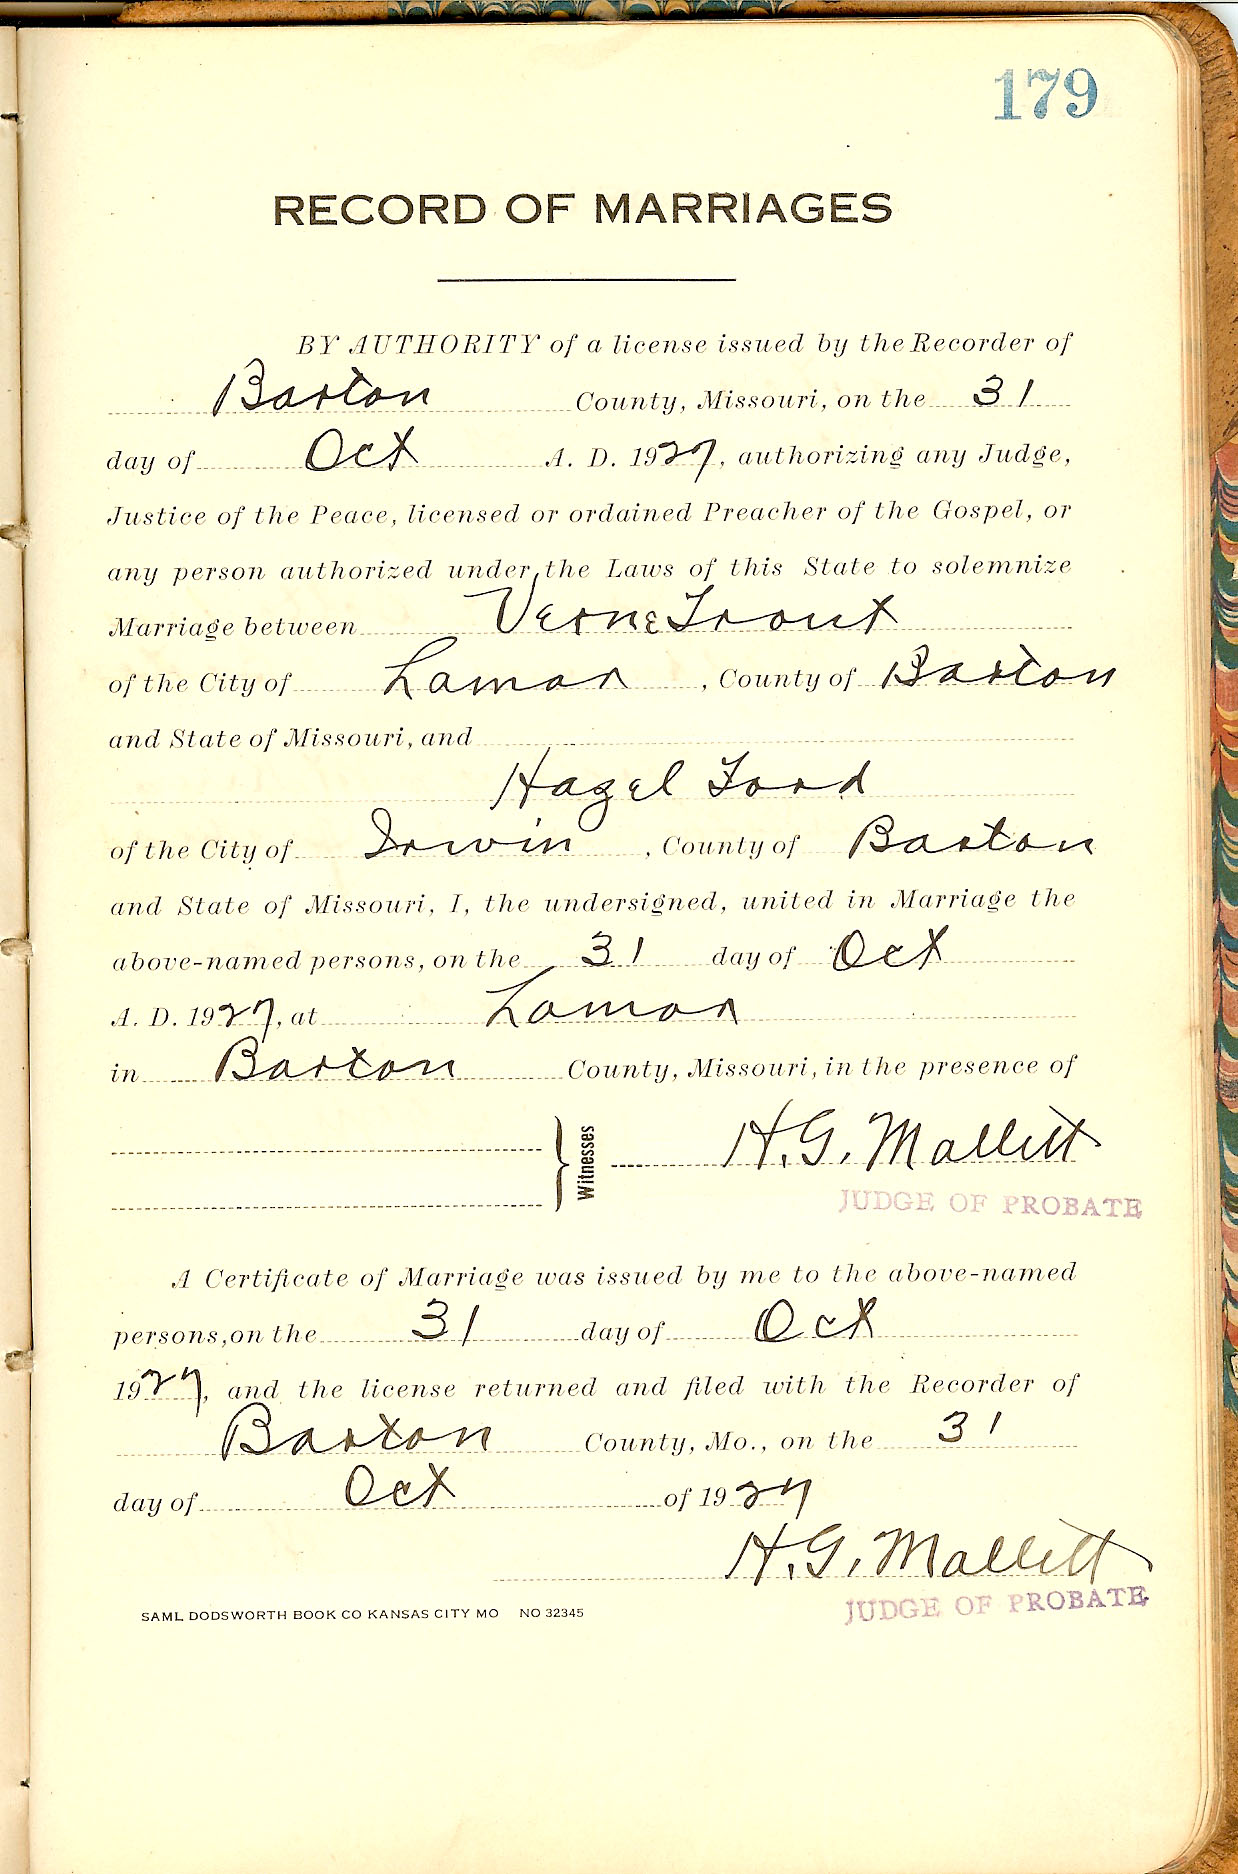 179
RECORD OF MARRIAGES
BY AUTHORITY of a license issued by the Recorder of
Barton County, Missouri, on the 31
day of Oct A. D. 1927, authorizing any Judge,
Justice of the Peace, licensed or ordained Preacher of the Gospel, or
any person authorized under the Laws of this State to solemnize
Marriage between Verne Trout
of the City of Lamar, County of Barton
and State of Missouri, and
Hazel Ford
of the City of Irwin, County of Barton
and State of Missouri, I, the undersigned, united in Marriage the
above-named persons, on the 31 day of Oct
A. D. 1927, at Lamar
in Barton County, Missouri, in the presence of
Witnesses H. G. Mallett
JUDGE OF PROBATE
A Certificate of Marriage was issued by me to the above-named
persons, on the 31 day of Oct
1927, and the license returned and filed with the Recorder of
Barton County, Mo., on the 31
day of Oct of 1927
H. G. Mallett
JUDGE OF PROBATE
SAML DODSWORTH BOOK CO KANSAS CITY MO NO 32345